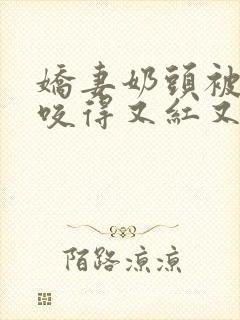 嬌妻奶頭被
咬得又紅又
陌路涼涼